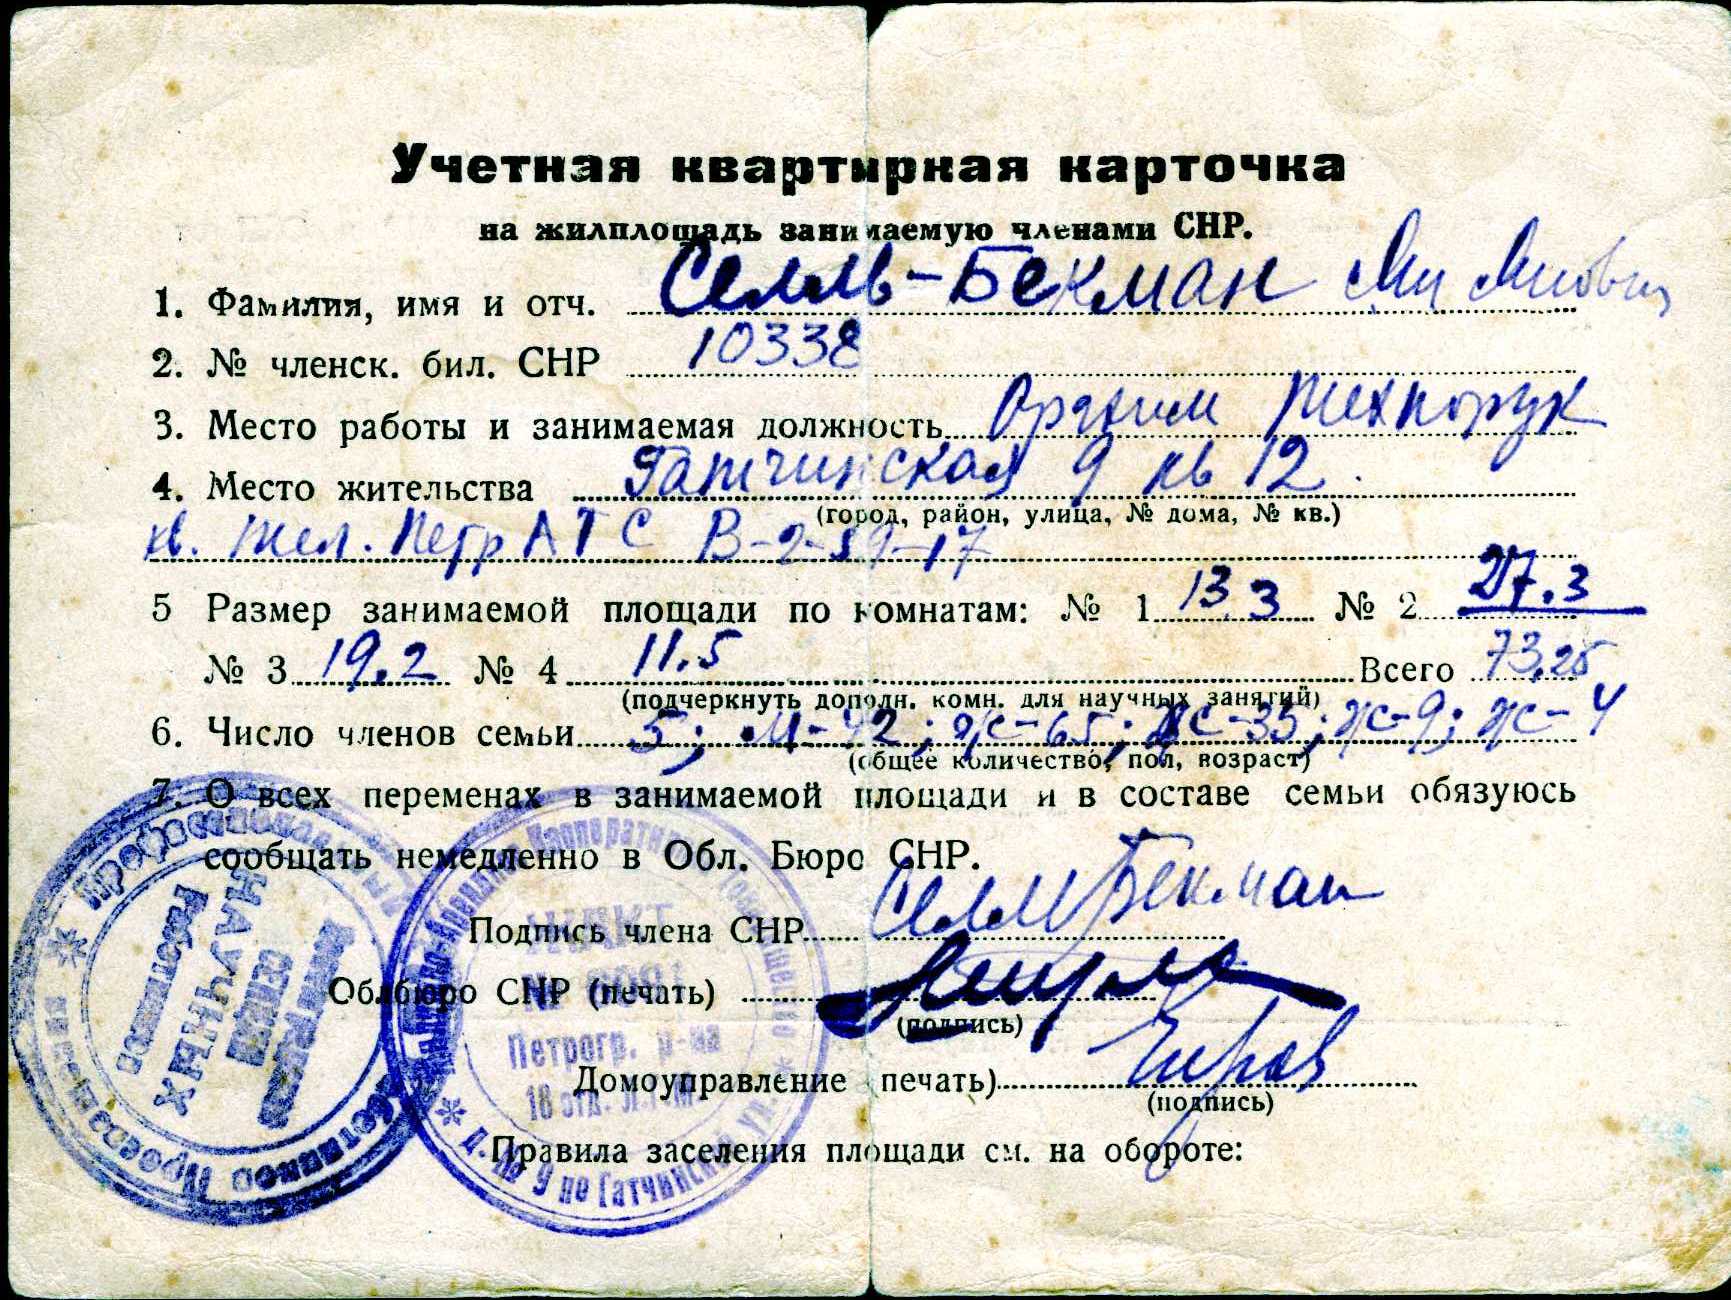 Учетная квартирная карточка
на жилплощадь занимаемую членами СНР.
1. Фамилия, имя и отч. Селль-Бекман
2. № членск. бил. СНР 10338
3. Место работы и занимаемая должность Оргхим Техпорук
4. Место жительства Гатчинская 9 кв 12.
(город, район, улица, № дома, № кв.)
кв. тел. Петр АТС В-2-59-17
5 Размер занимаемой площади по комнатам: № 1 13.3 № 2 27.3
№ 3 19.2 № 4 11.5 Всего 73,25
(подчеркнуть дополн. комн. для научных занятий)
6. Число членов семьи 5; М-42; Ж-65; Ж-35; Ж-9; Ж-4
(общее количество, пол, возраст)
7. О всех переменах в занимаемой площади и в составе семьи обязуюсь
сообщать немедленно в Обл. Бюро СНР.
Подпись члена СНР Селль Бекман
Облбюро СНР (печать)
(подпись)
Домоуправление печать)
(подпись)
Правила заселения площади см. на обороте:
НАУЧНЫХ
Работников
Петрогр. р-на
18 отд. Л.Г.М.
д. № 9 по Гатчинской ул.